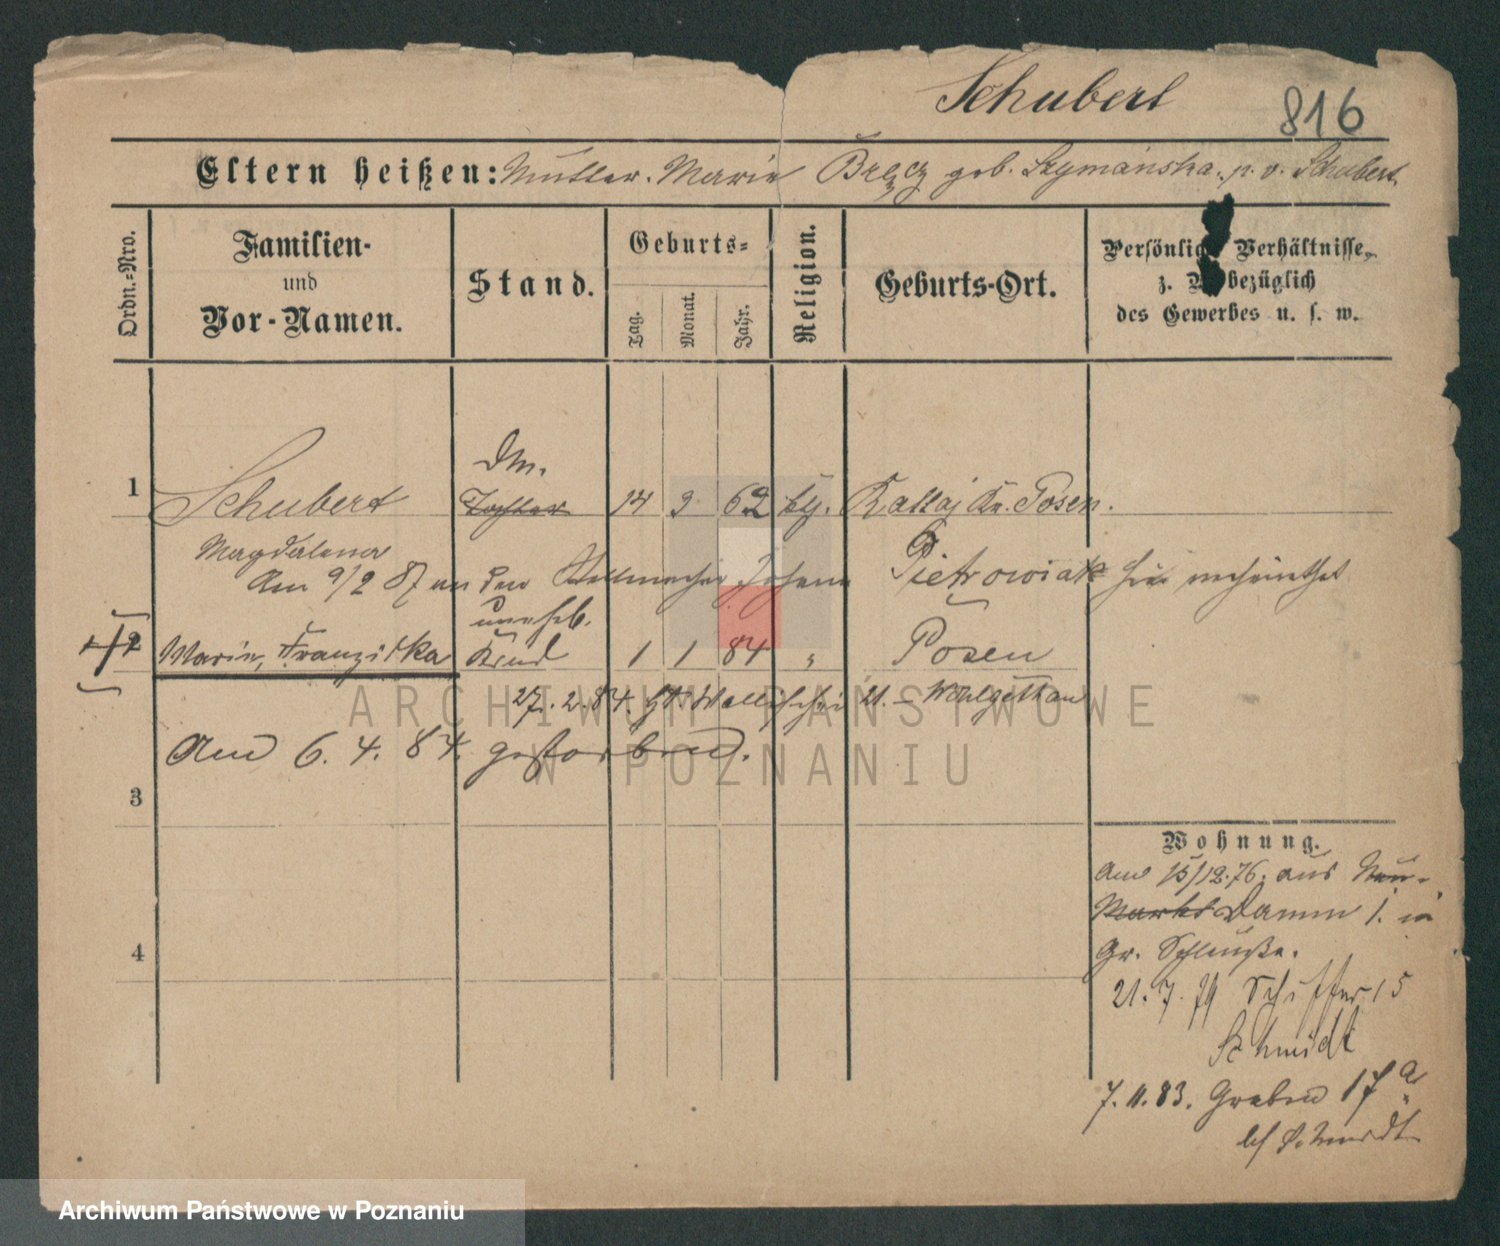 Schubert 816
Eltern heißen: Mutter. Marie Brzęcz geb. Szymańska. p. v. Schubert.
Ordn.-Nro.
Familien-
und
Vor-Namen.
Stand.
Geburts-
Tag. Monat. Jahr.
Religion.
Geburts-Ort.
Persönliche Verhältnisse,
z. B. bezüglich
des Gewerbes u. s. w.
Dm.
1 Schubert Tochter 14 9 62 Kattaj Kr. Posen.
Magdalena
Am 9/2 87 an den Johann Pietrowiak hier verheirathet
unehl.
2 Marie, Franziska Kind 1 1 84 " Posen
27. 2. 84. Wallischei 21. – Wohlgethan
Am 6. 4. 84. gestorben.
3
4
Wohnung.
Am 15/12. 76. aus Neu-
Markt Damm 1. in
Gr. Schleuße.
21. 7. 79 Schiffer. 15
Schmidt
7. 11. 83. Graben 17 a
b/ Schmidt
ARCHIWUM PAŃSTWOWE
W POZNANIU
Archiwum Państwowe w Poznaniu